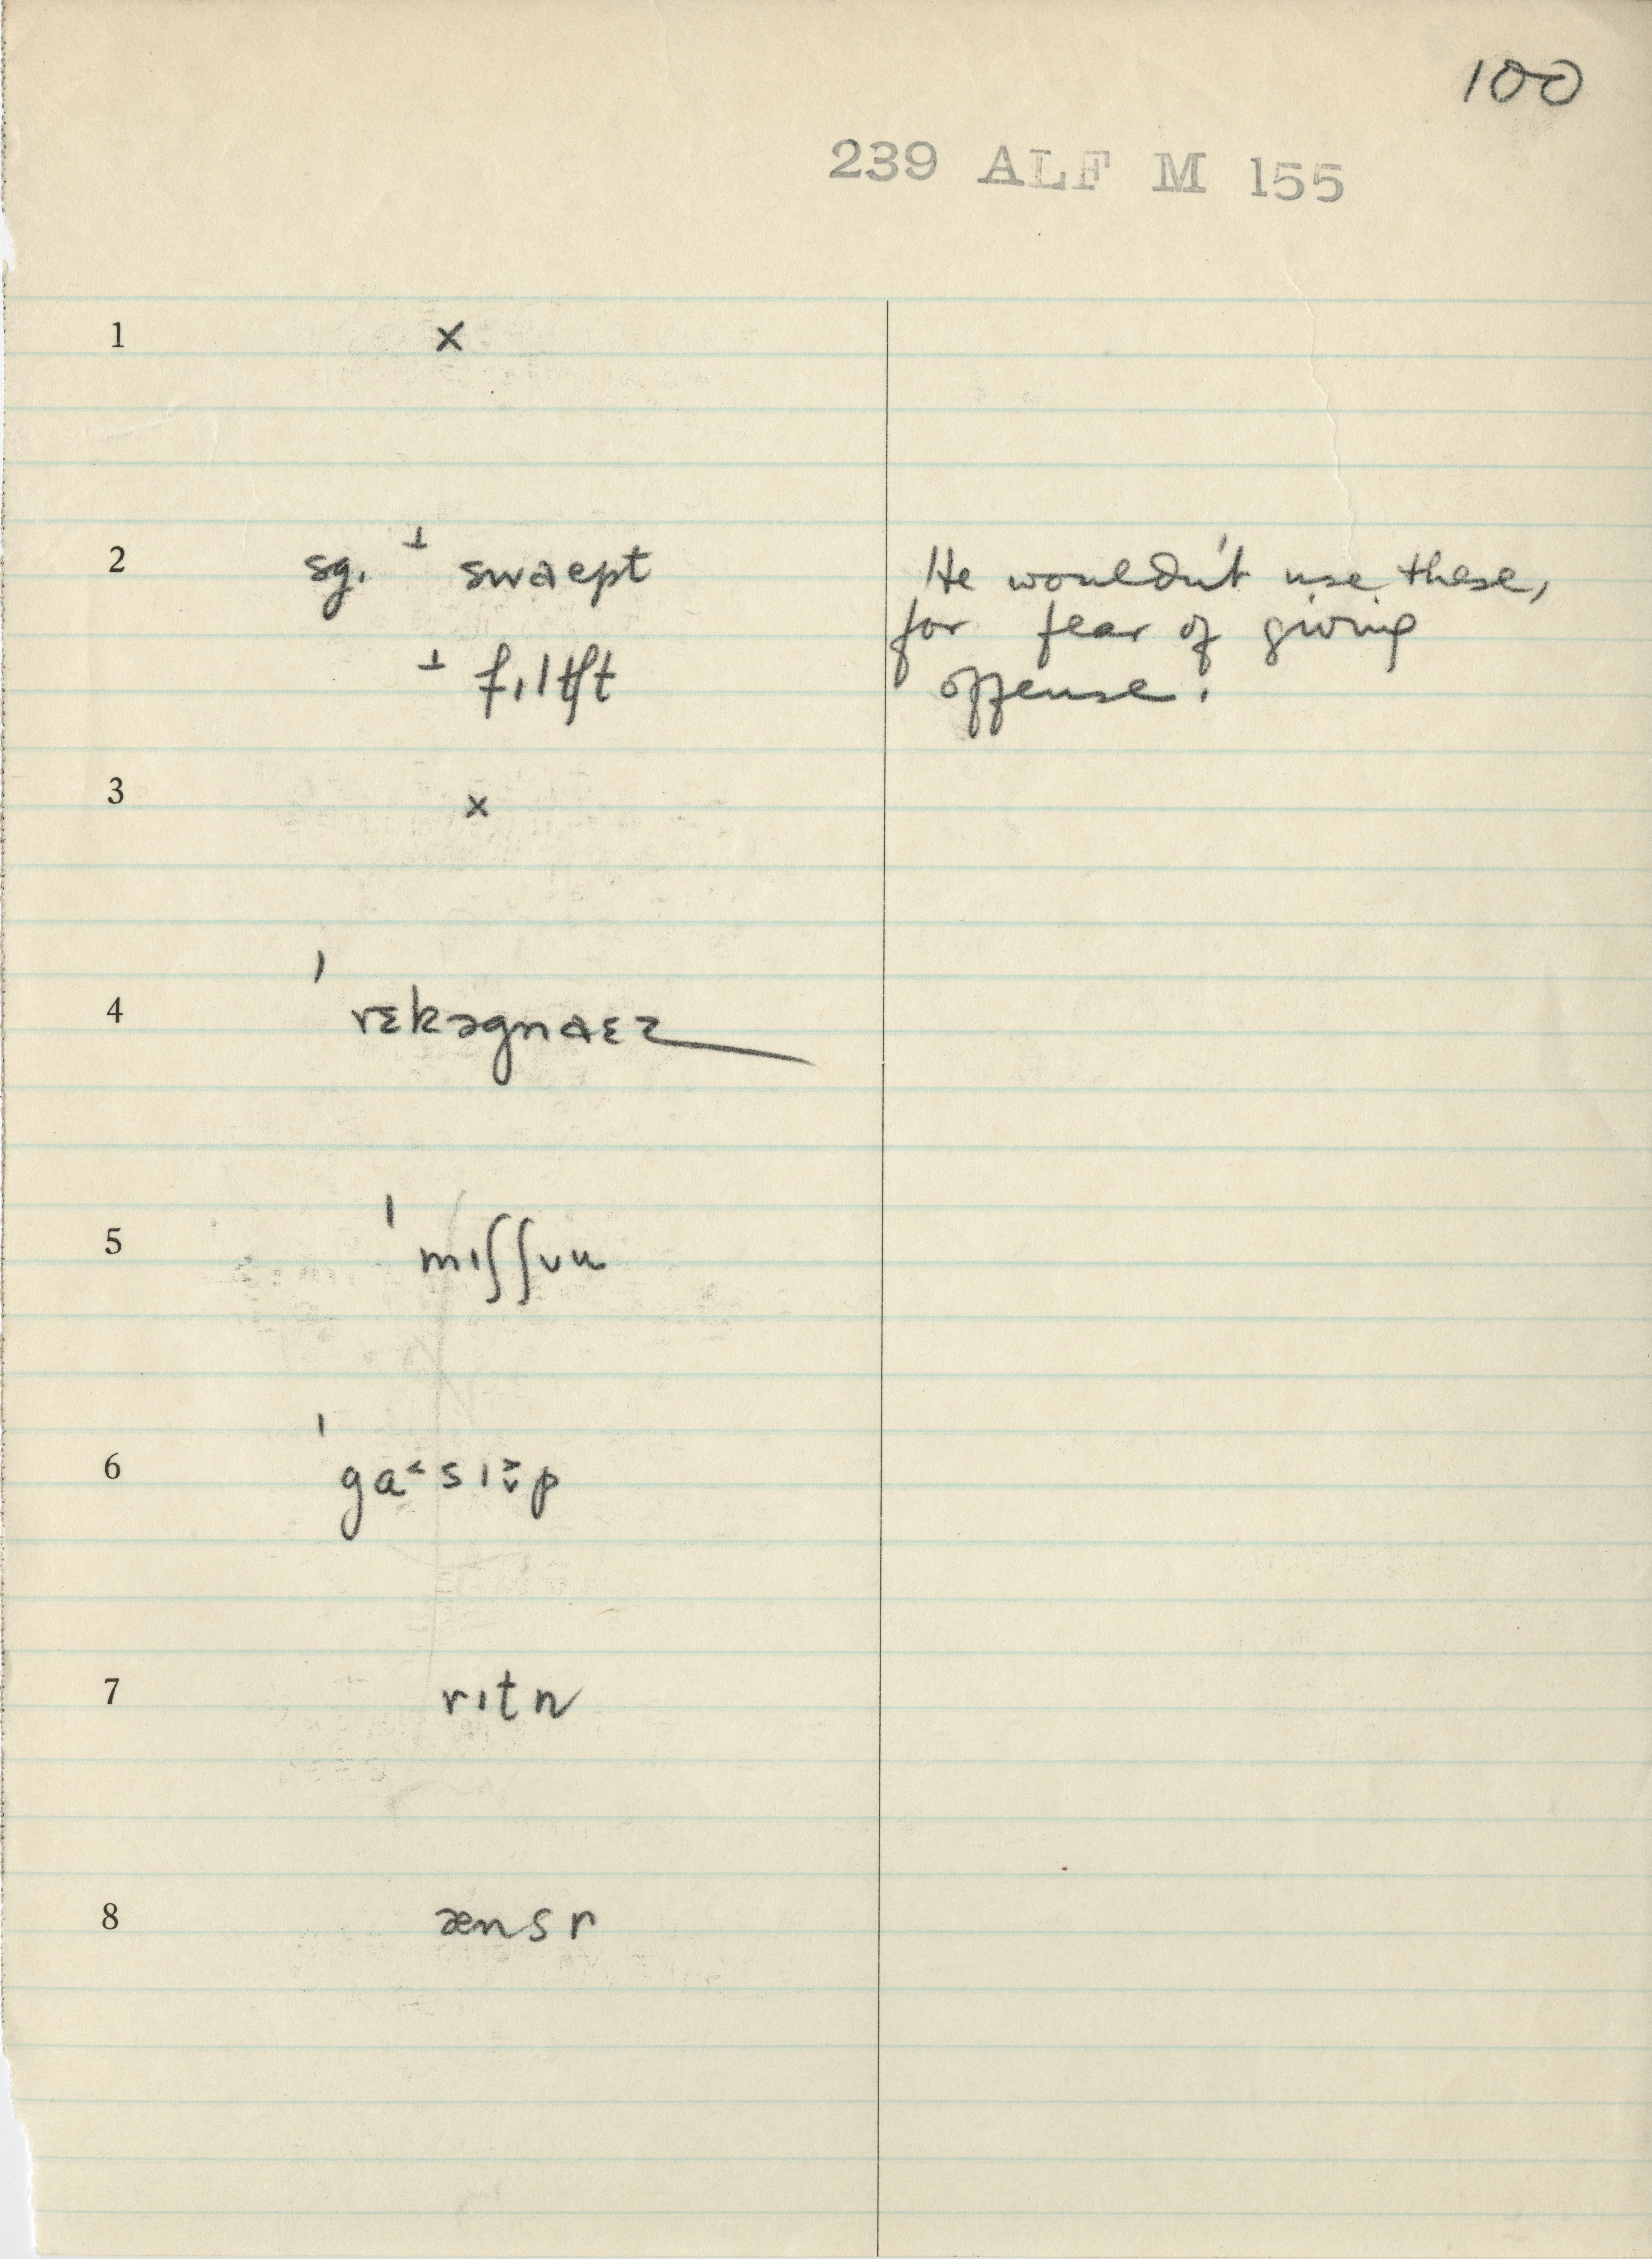 100
239 ALF M 155
1 ×
2 sg. ⊥ swaɛpt He wouldn't use these,
for fear of giving
⊥ fɪltʃt offense.
3 ×
4 ˈrɛkəgnaɛz
5 ˈmɪʃʃʊn
6 ˈga˂sɪp
7 rɪtn
8 ænsr